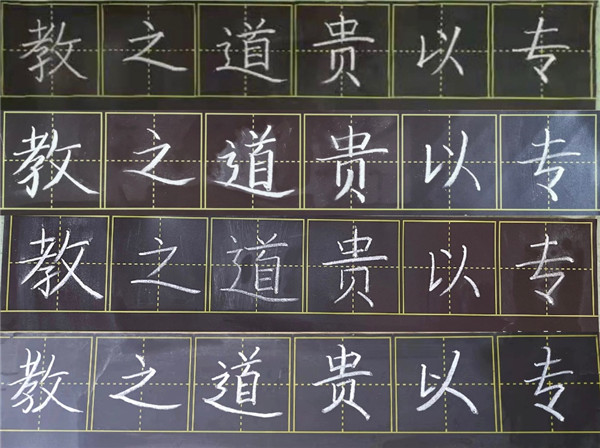 教之道贵以专
教之道贵以专
教之道贵以专
教之道贵以专